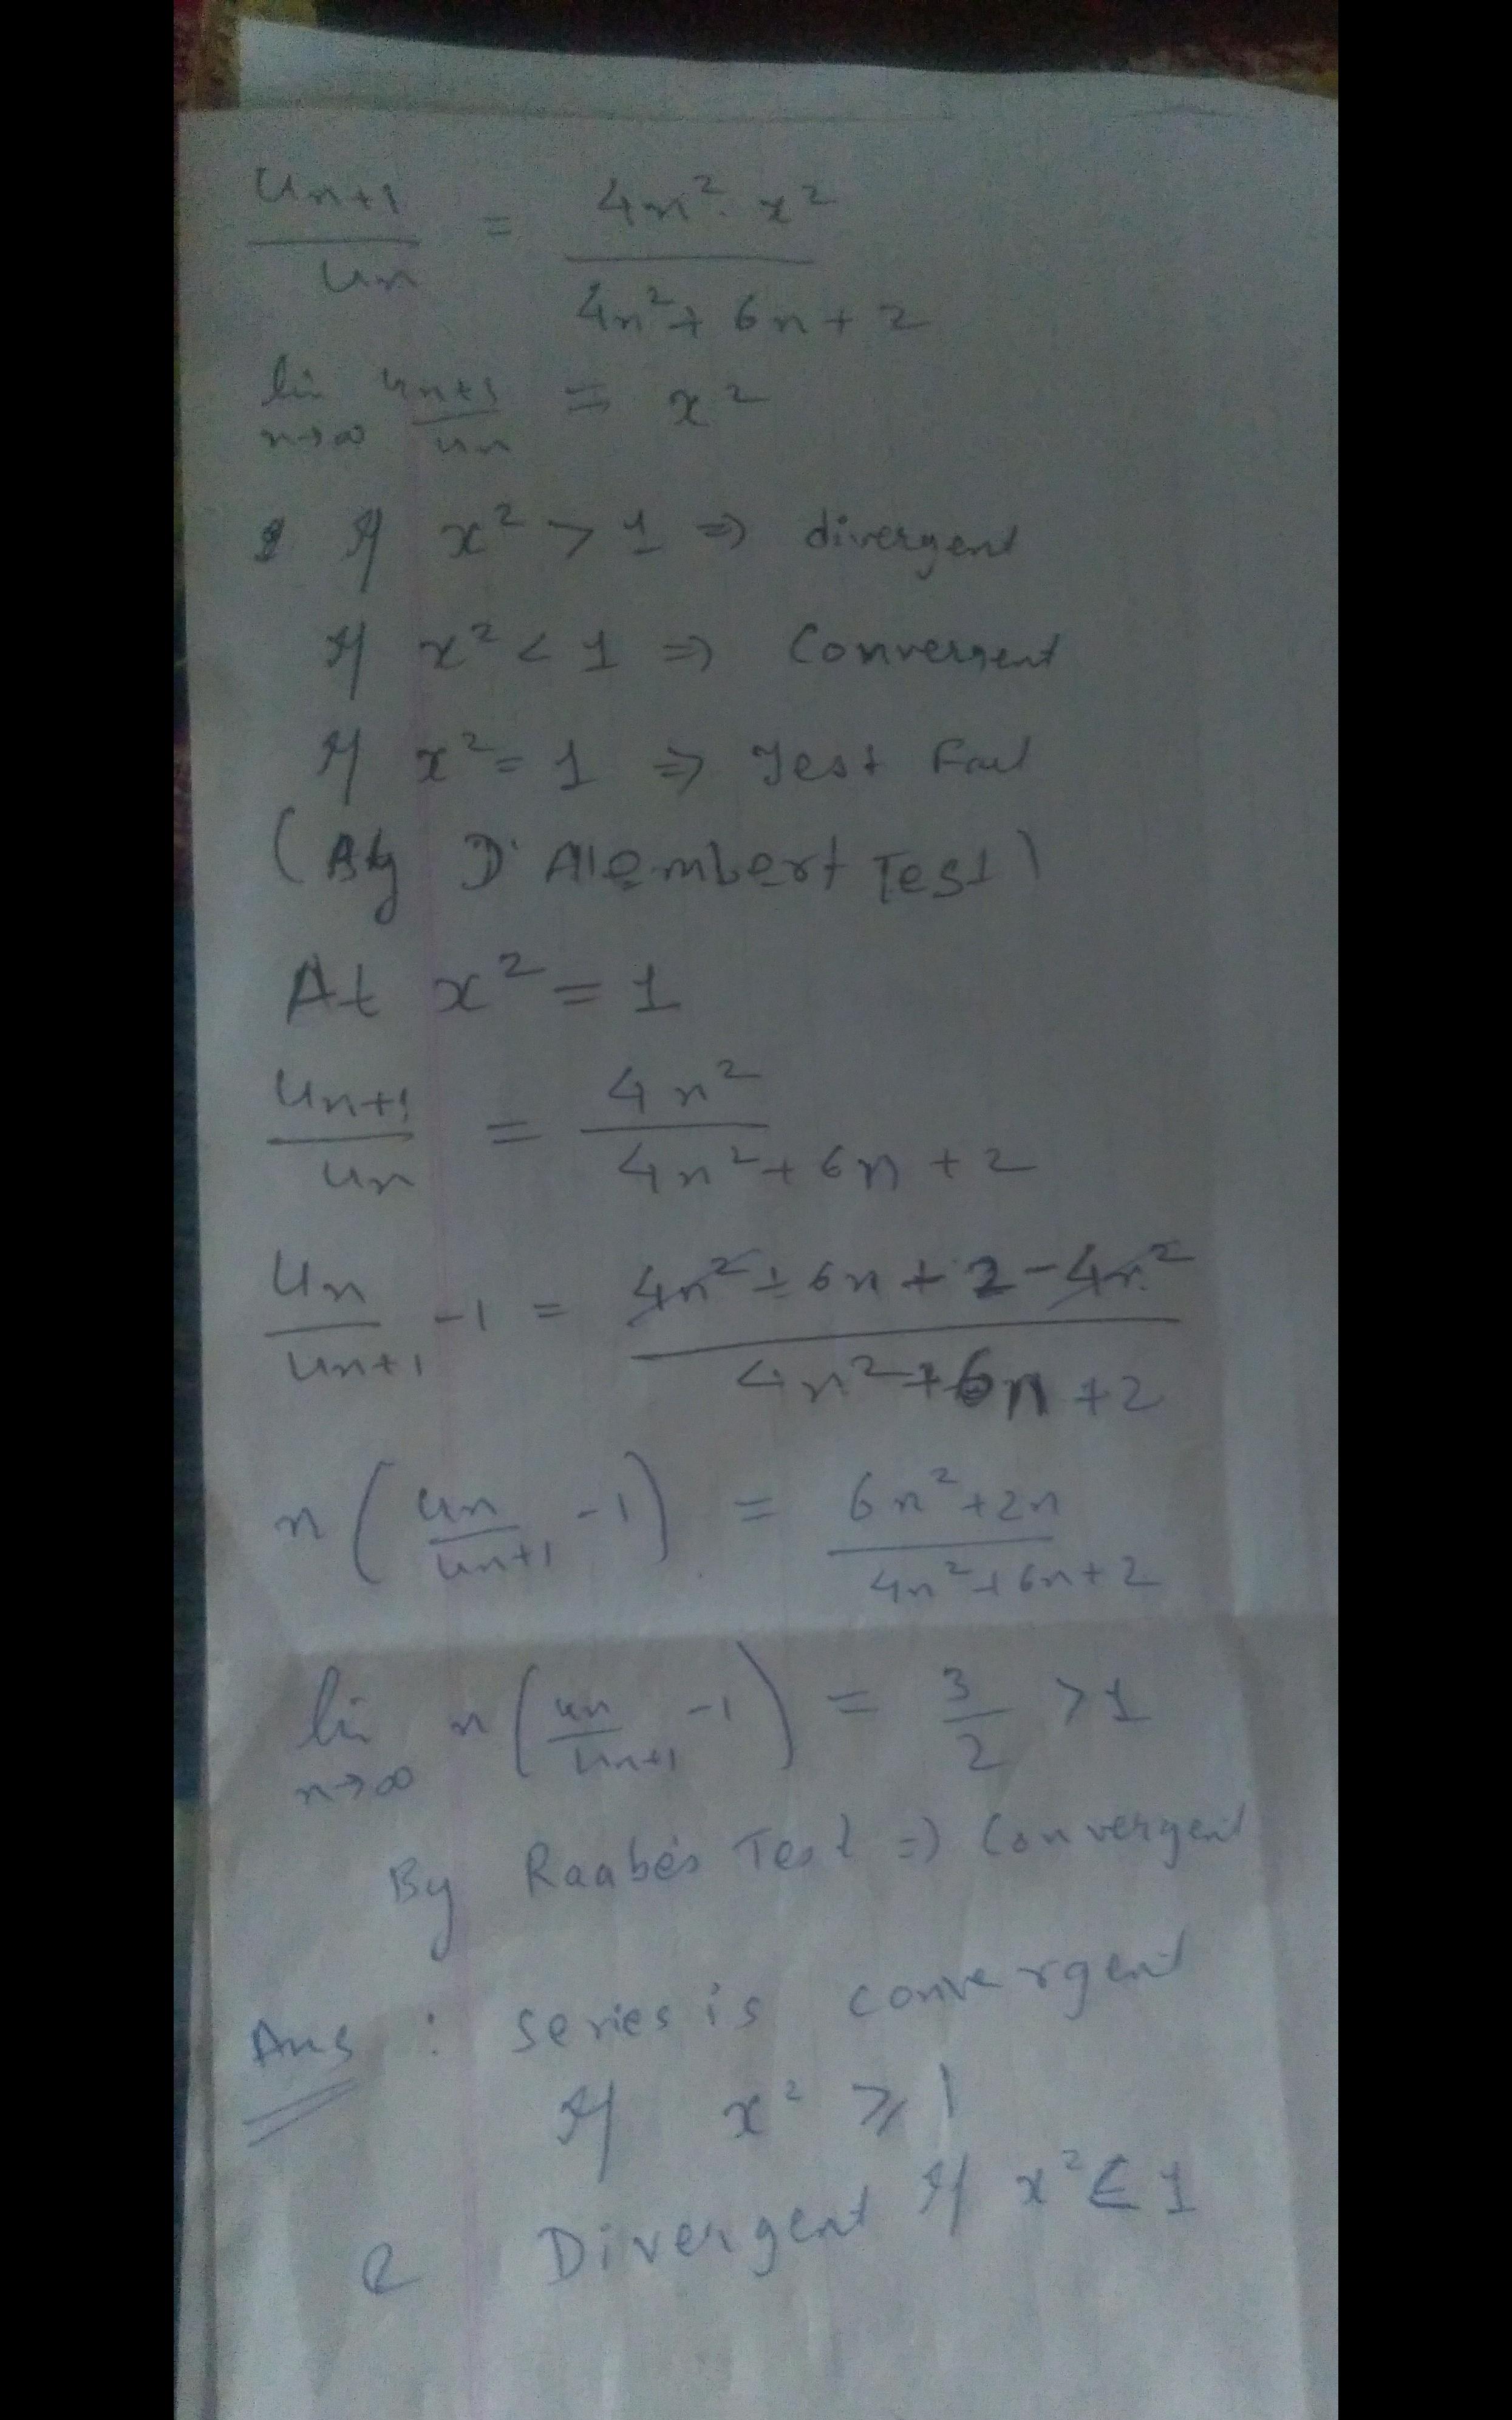 Un+1/Un = 4n². x²/4n²+6n+2
li n→∞ Un+1/Un = x²
If x² > 1 ⇒ divergent
If x² < 1 ⇒ Convergent
If x² = 1 ⇒ Test Fail
(By D'Alembert Test)
At x² = 1
Un+1/Un = 4n²/4n²+6n+2
Un/Un+1 -1 = 4n²+6n+2-4n²/4n²+6n+2
n(Un/Un+1 -1) = 6n²+2n/4n²+6n+2
li n→∞ n(Un/Un+1 -1) = 3/2 > 1
By Raabe's Test ⇒ Convergent
Ans : series is convergent
If x² ⩾ 1
& Divergent If x² ≤ 1